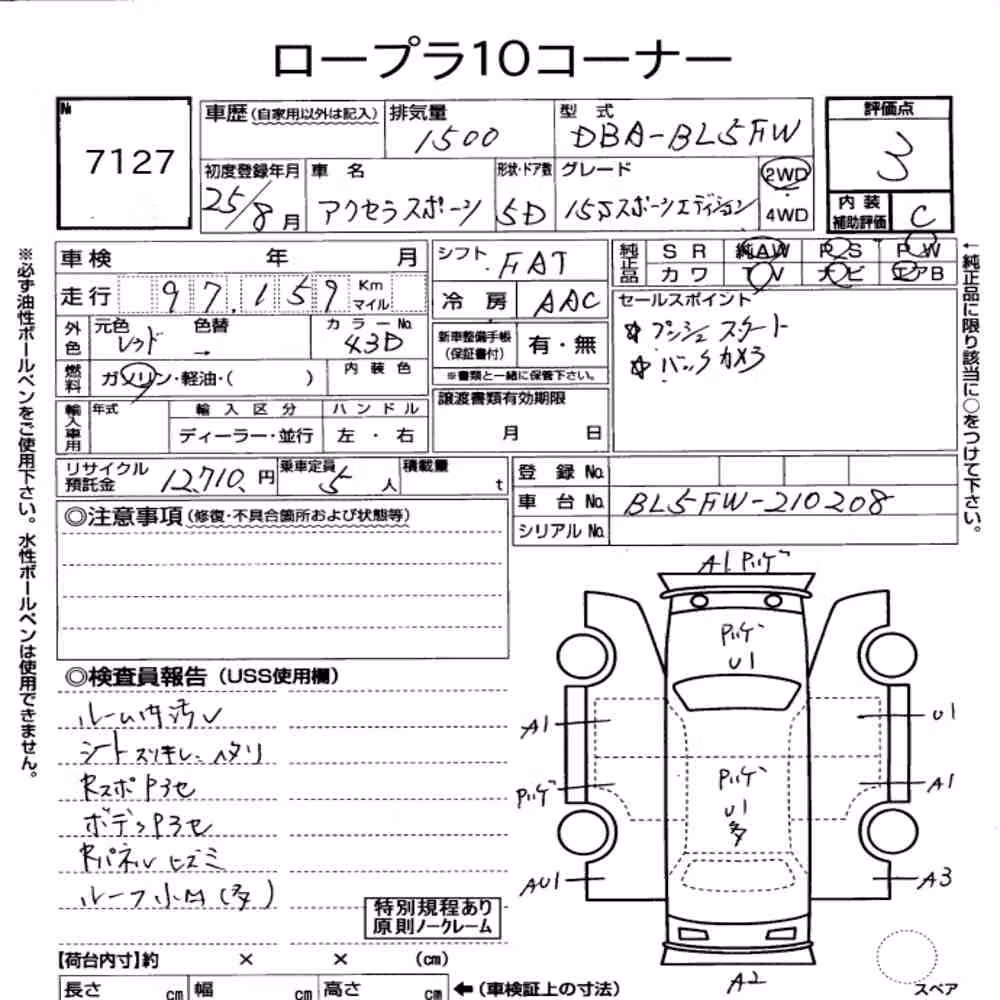 ロープラ10コーナー
№ 7127
車歴(自家用以外は記入)
排気量 1500
型式 DBA-BL5FW
評価点 3
初度登録年月 25/8月
車名 アクセラスポーツ
形状・ドア数 5D
グレード 15Sスポーツエディション
2WD
4WD
内装補助評価 C
※必ず油性ボールペンをご使用下さい。水性ボールペンは使用できません。
←純正品に限り該当に○をつけて下さい。
車検 年 月
シフト FAT
純正品 SR 純AW PS PW
カワ TV ナビ エアB
走行 97.159 Km マイル
冷房 AAC
セールスポイント
☆プッシュスタート
☆バックカメラ
外色 元色 レッド 色替 →
カラーNo. 43D
新車整備手帳(保証書付) 有・無
※書類と一緒に保管下さい。
燃料 ガソリン・軽油・( )
内装色
譲渡書類有効期限
月 日
輸入車用 年式
輸入区分 ディーラー・並行
ハンドル 左・右
リサイクル預託金 12,710.円
乗車定員 5人
積載量 t
登録No.
車台No. BL5FW-210208
シリアルNo.
◎注意事項(修復・不具合箇所および状態等)
◎検査員報告(USS使用欄)
ルーム内汚レ
シートスリキレ、ヘタリ
RスポP3セ
ボデーP3セ
Rパネルヒズミ
ルーフ小凹(多)
特別規程あり
原則ノークレーム
A1 Pハゲ
Pハゲ
U1
A1
U1
Pハゲ
Pハゲ
U1
多
A1
AU1
A3
A2
スペア
【荷台内寸】約 × × (cm)
長さ cm 幅 cm 高さ cm ←(車検証上の寸法)